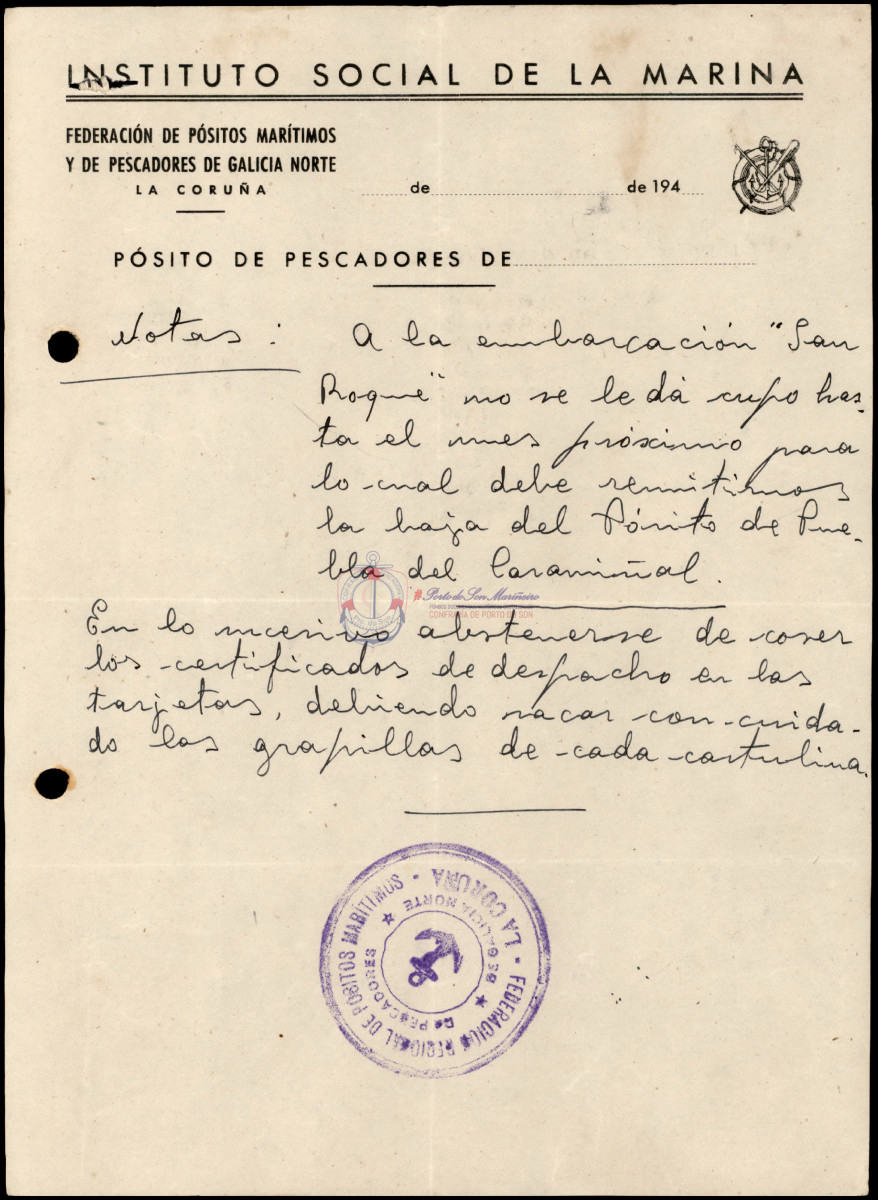 INSTITUTO SOCIAL DE LA MARINA
FEDERACIÓN DE PÓSITOS MARÍTIMOS
Y DE PESCADORES DE GALICIA NORTE
LA CORUÑA
de de 194
PÓSITO DE PESCADORES DE
Notas : A la embarcación "San
Roque" no se le dá cupo has-
ta el mes próximo para
lo cual debe remitirnos
la baja del Pósito de Pue-
bla del Caramiñal.
Porto do Son Mariñeiro
CONFRARÍA DE PORTO DE SON
En lo sucesivo abstenerse de coser
los certificados de despacho en las
tarjetas, debiendo sacar con cuida-
do las grapillas de cada cartulina.
FEDERACION REGIONAL DE POSITOS MARÍTIMOS - LA CORUÑA -
DE PESCADORES DE GALICIA NORTE